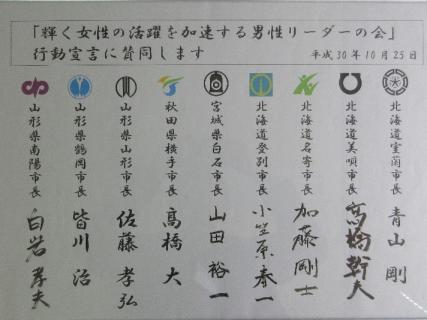 「輝く女性の活躍を加速する男性リーダーの会」
行動宣言に賛同します
平成30年10月25日
北海道室蘭市長 青山 剛
北海道美唄市長 髙橋幹夫
北海道名寄市長 加藤剛士
北海道登別市長 小笠原春一
宮城県白石市長 山田裕一
秋田県横手市長 髙橋 大
山形県山形市長 佐藤孝弘
山形県鶴岡市長 皆川 治
山形県南陽市長 白岩孝夫